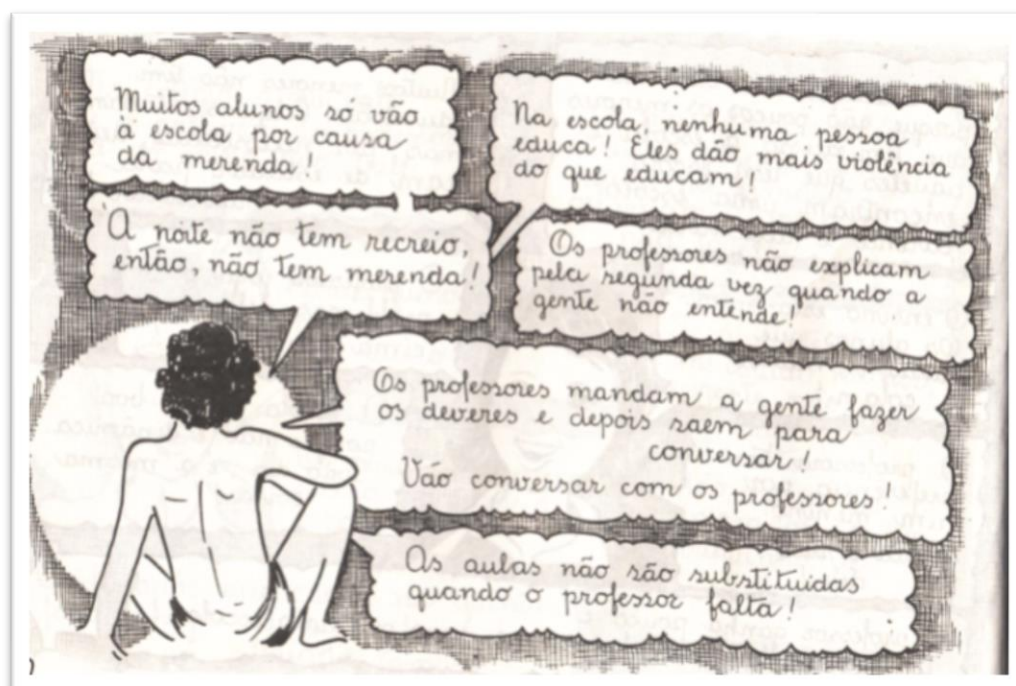 Muitos alunos só vão
à escola por causa
da merenda!
Na escola, nenhuma pessoa
educa! Eles dão mais violência
do que educam!
À noite não tem recreio,
então, não tem merenda!
Os professores não explicam
pela segunda vez quando a
gente não entende!
Os professores mandam a gente fazer
os deveres e depois saem para
conversar!
Vão conversar com os professores!
As aulas não são substituídas
quando o professor falta!